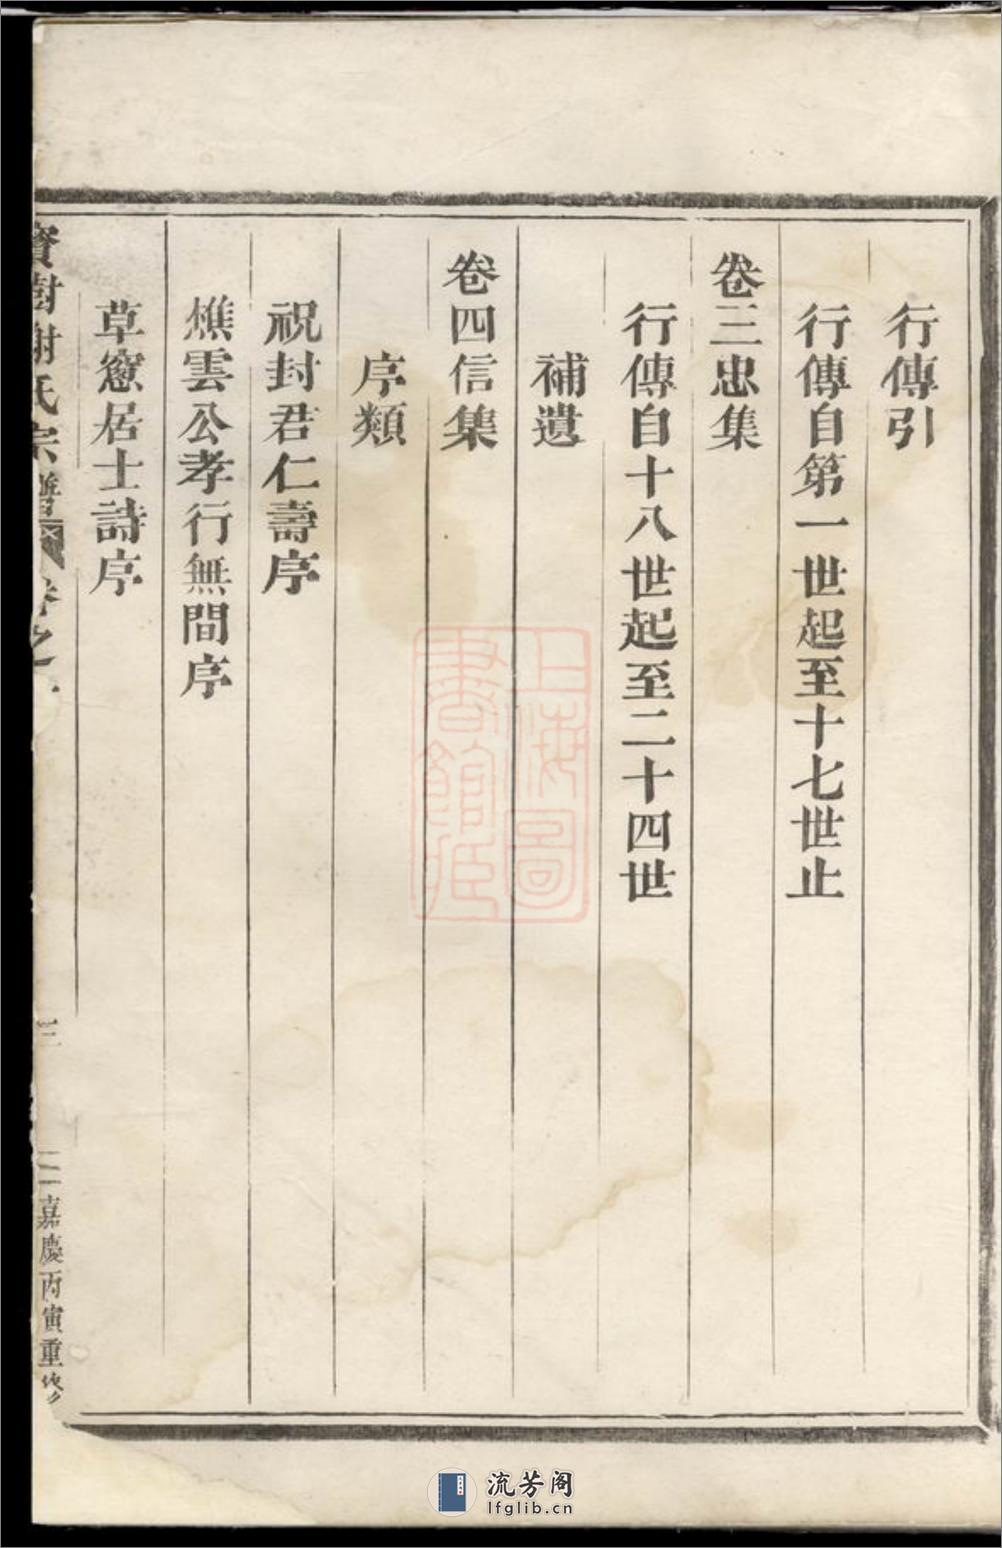 行傳引
行傳自第一世起至十七世止
卷三忠集
行傳自十八世起至二十四世
補遺
卷四信集
序類
祝封君仁壽序
樵雲公孝行無間序
草窻居士詩序
寶樹謝氏宗譜 卷之一
三
嘉慶丙寅重修
上海圖書館藏
流芳阁
lfglib.cn